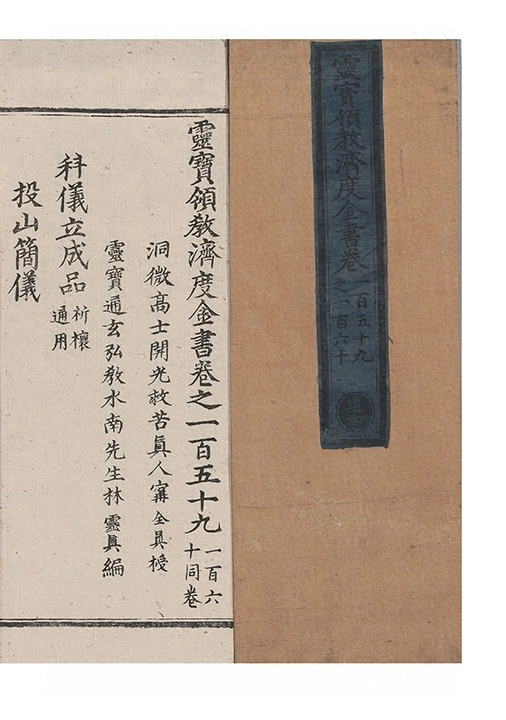 靈寶領教濟度金書卷
一百五十九
之一百六十
靈寶領教濟度金書卷之一百五十九
一百六
十同卷
洞微高士開光救苦眞人甯全眞授
靈寶通玄弘教水南先生林靈眞編
科儀立成品
祈禳
通用
投山簡儀